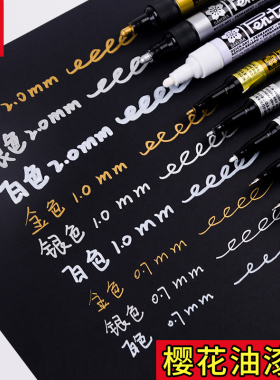 2.0mm
银色 2.0mm
白色 2.0mm
金色 1.0mm
银色 1.0mm
白色 1.0mm
金色 0.7mm
银色 0.7mm
白色 0.7mm
樱花油漆